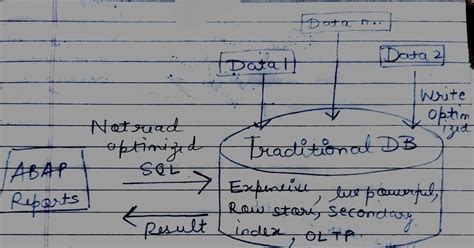 Data n..
Data 1
Data 2
Write
Optim
ized
Not read
optimized
SQL
Traditional DB
ABAP
Reports
Result
Expensive, less powerful,
Row store, Secondary
index, OLTP